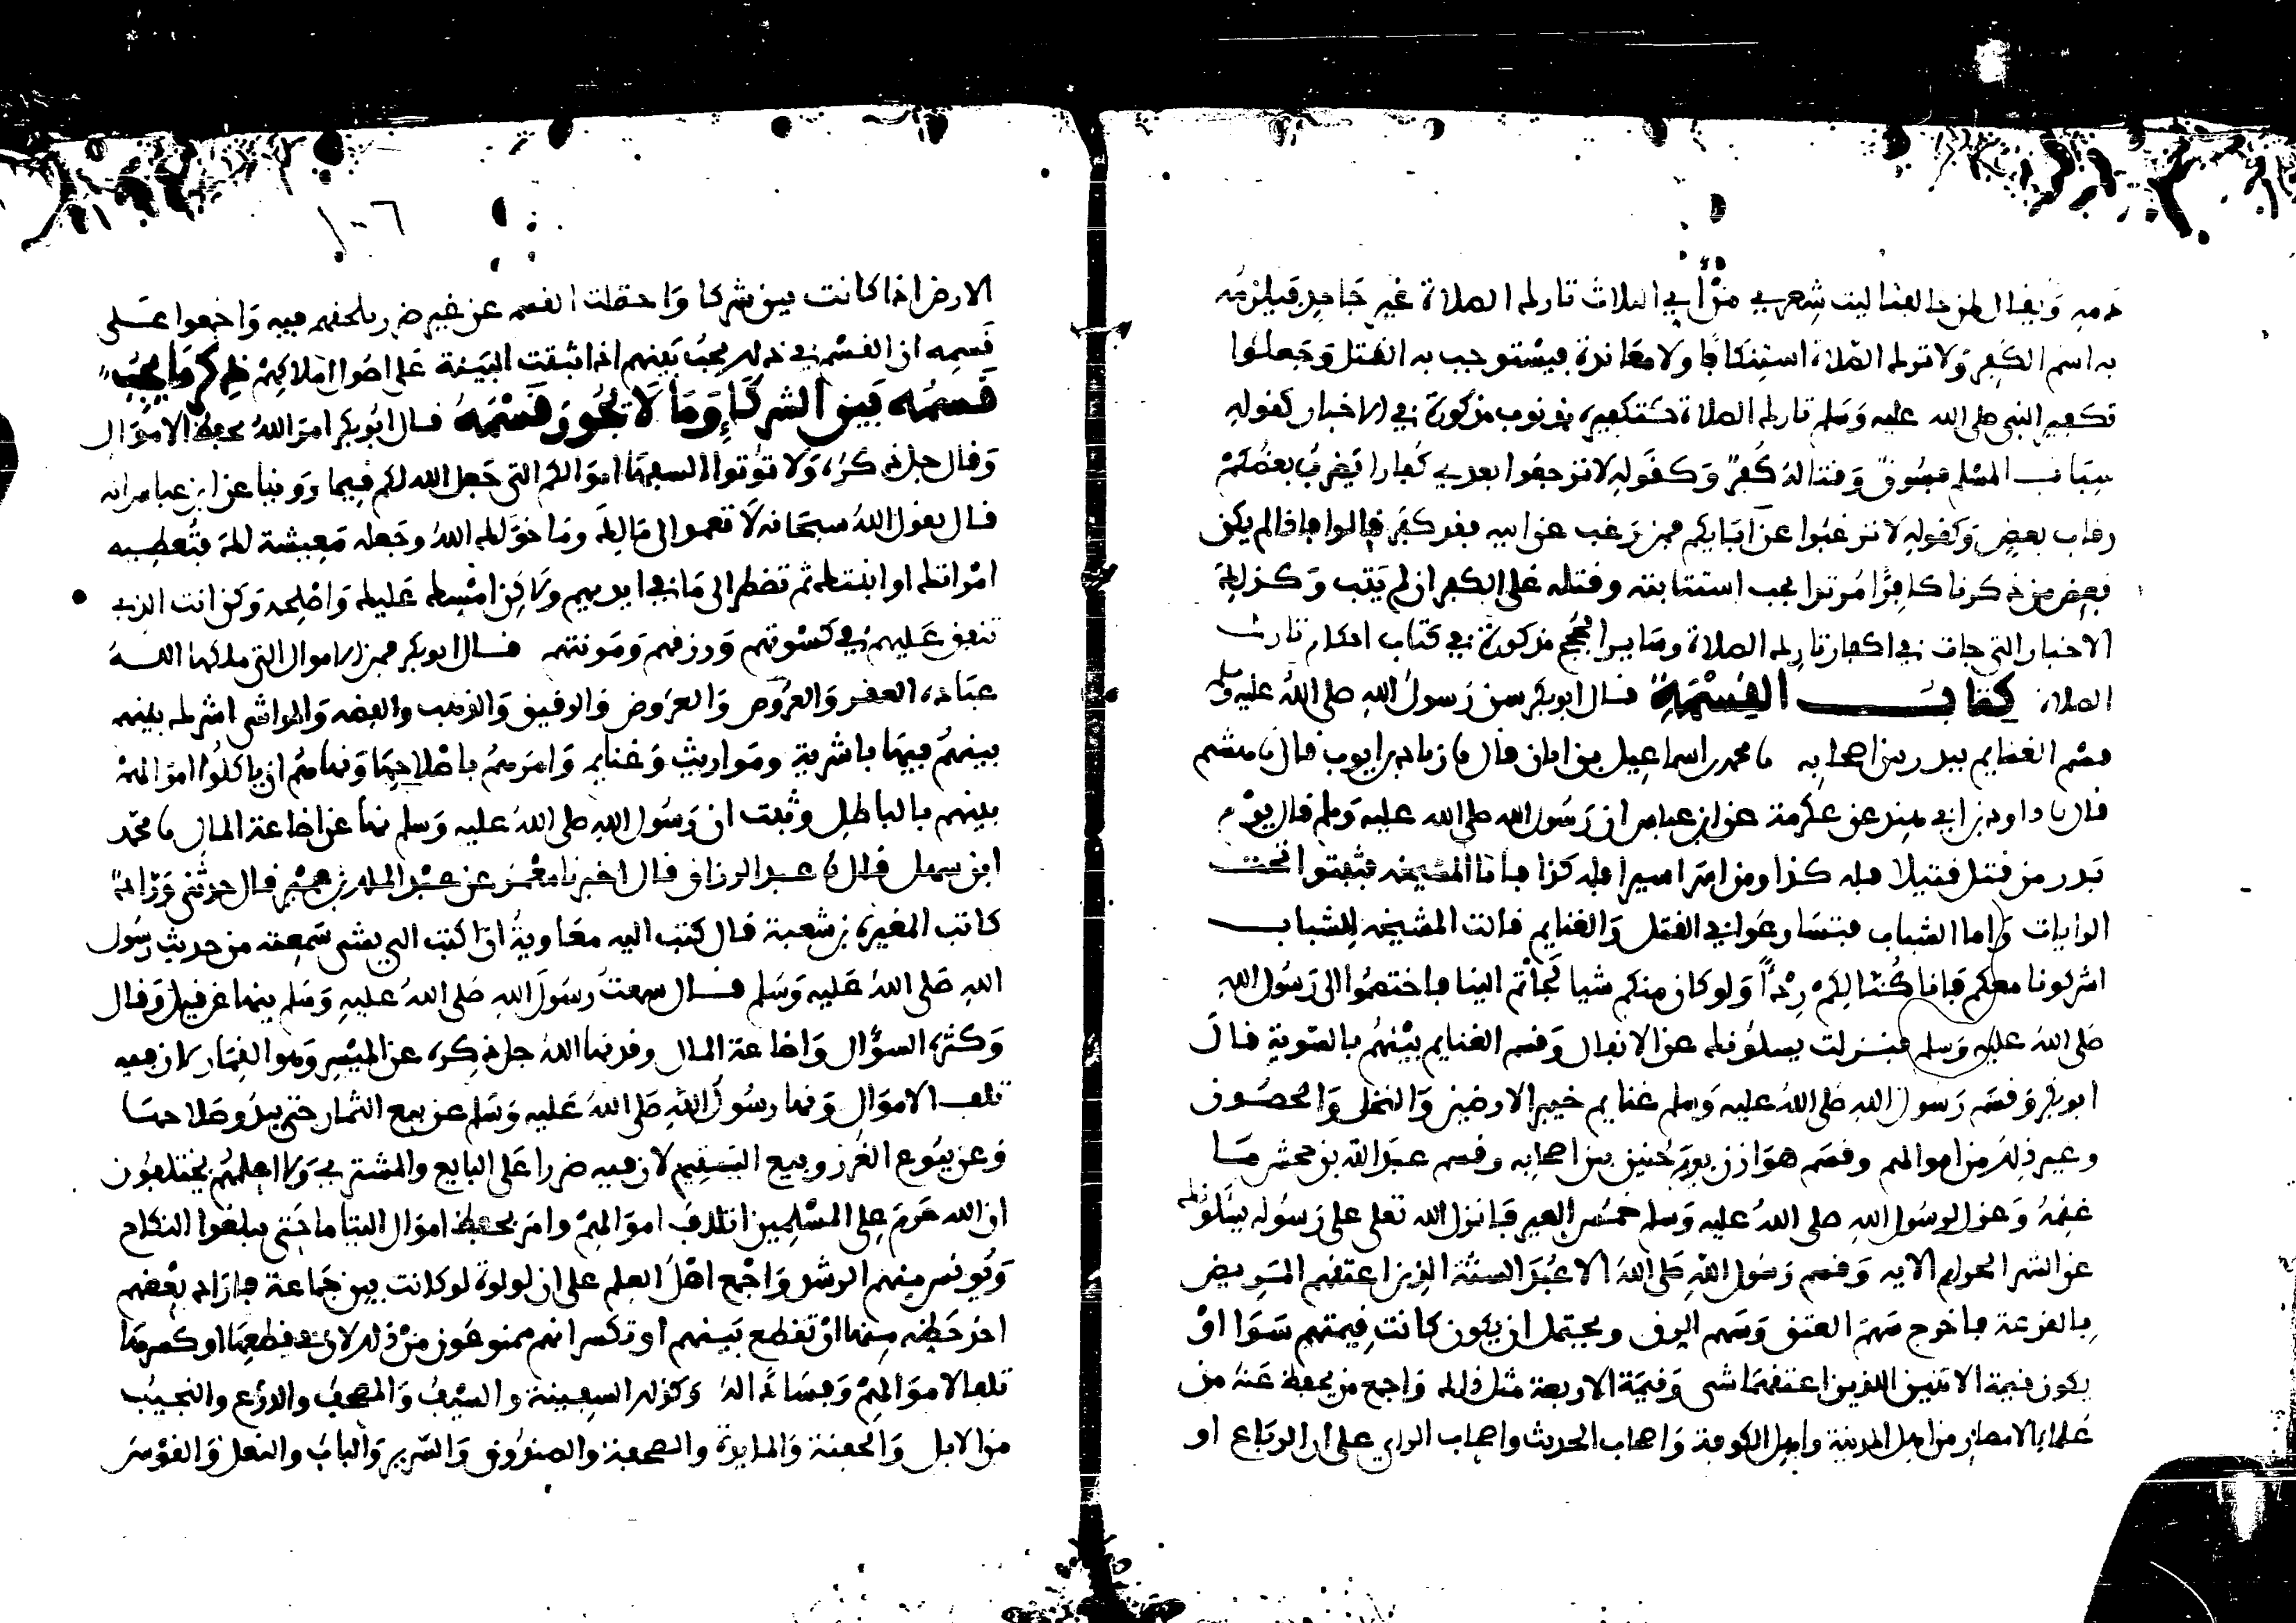 دمه ويقال لمن خالفنا ليت شعري من أبي الثلاث تارك الصلاة غير جاحد فيلزمه
به اسم الكفر ولا ترك الصلاة استنكافا ولا معاندة فيستوجب به القتل وجعلوا
تكفير النبي صلى الله عليه وسلم تارك الصلاة كتكفيره بذنوب مذكورة في الاخبار كقوله
سباب المسلم فسوق وقتاله كفر وكقوله لا ترجعوا بعدي كفارا يضرب بعضكم
رقاب بعض وكقوله لا ترغبوا عن ابايكم فمن رغب عن ابيه فقد كفر قالوا فاذا لم يكن
بعض من ذكرنا كافرا مرتدا يجب استتابته وقتله على الكفر ان لم يتب وكذلك
الاخبار التي جات في اكفار تارك الصلاة وساير الحجج مذكورة في كتاب احكام تارك
الصلاة كتاب القسمة قال ابو بكر سن رسول الله صلى الله عليه وسلم
قسم الغنايم ببدر بين اصحابه نا محمد بن اسماعيل بن ابان قال نا زياد بن ايوب قال نا هشيم
قال نا داود بن ابي هند عن عكرمة عن ابن عباس ان رسول الله صلى الله عليه وسلم قال يوم
بدر من قتل قتيلا فله كذا ومن اسر اسيرا فله كذا فاما المشيخه فثبتوا تحت
الرايات واما الشباب فتسارعوا في القتل والغنايم فقالت المشيخه للشباب
اشركونا معكم فانا كنا لكم ردءا ولو كان منكم شيا لجأتم الينا فاختصموا الى رسول الله
صلى الله عليه وسلم فنزلت يسلونك عن الانفال وقسم الغنايم بينهم بالسوية قال
ابو بكر وقسم رسول الله صلى الله عليه وسلم غنايم خيبر الارضين والنخل والحصون
وغير ذلك من اموالهم وقسم هوازن يوم حنين بين اصحابه وقسم عبد الله بن جحش ما
غنمه وعزل لرسول الله صلى الله عليه وسلم خمس العير فانزل الله تعلى على رسوله يسلونك
عن الشهر الحرام الايه وقسم رسول الله صلى الله الاعبد الستة الذين اعتقهم المريض
بالقرعة فاخرج سهم العتق وسهم الرق ويحتمل ان يكون كانت قيمتهم سوا او
يكون قيمة الاثنين اللذين اعتقهما شي وقيمة الاربعة مثل ذلك واجمع من يحفظ عنه من
علماء الامصار من اهل المدينة واهل الكوفة واصحاب الحديث واصحاب الراي على ان الرباع او
١٠٦
الارض اذا كانت بين شركا واحتملت القسم عن غير ضرر يلحقهم فيه واجمعوا على
قسمه ان القسم في ذلك يجب بينهم اذا ثبتت البينة على اصول املاكهم ذكر ما يجب
قسمه بين الشركاء وما لا يجوز قسمه قال ابو بكر امر الله بحفظ الاموال
وقال جل ذكره ولا توتوا السفها اموالكم التي جعل الله لكم قيما روينا عن ابن عباس انه
قال يقول الله سبحانه لا تعمد الى مالك وما خولك الله وجعله معيشة لك فتعطيه
امراتك او ابنتك ثم تضطر الى ما في ايديهم ولكن امسك عليك واصلحه وكن انت الذي
تنفق عليهم في كسوتهم ورزقهم ومونتهم قال ابو بكر فمن الاموال التي ملكها الله
عباده العقر والعروض والرقيق والذهب والفضه والمواشي اشرك بينهم
بينهم فيها باشرية ومواريث وغنايم وامرهم باصلاحها ونهاهم ان ياكلوا اموالهم
بينهم بالباطل وثبت ان رسول الله صلى الله عليه وسلم نها عن اضاعة المال نا محمد
ابن سهل قال نا عبد الرزاق قال اخبرنا معمر عن عبد الملك بن عمير قال حدثني وراد
كاتب المغيرة بن شعبة قال كتب اليه معاوية ان اكتب الي بشي سمعته من حديث رسول
الله صلى الله عليه وسلم قال سمعت رسول الله صلى الله عليه وسلم ينها عن قيل وقال
وكثرة السؤال واضاعة المال وقد نها الله جل ذكره عن الميسر وهو القمار لان فيه
تلف الاموال ونها رسول الله صلى الله عليه وسلم عن بيع الثمار حتى يبدو صلاحها
وعن بيوع الغرر وبيع السنين لان فيه ضررا على البايع والمشتري ولا اعلمهم يختلفون
ان الله حرم على المسلمين اتلاف اموالهم وامر بحفظ اموال اليتاما حتى يبلغوا النكاح
ويونس منهم الرشد واجمع اهل العلم على ان لولوة لو كانت بين جماعة فاراد بعضهم
اخذ حظه منها ان تقطع بينهم او تكسر انهم ممنوعون من ذلك لان في قطعها او كسرها
تلفا لاموالهم وفسادا له وكذلك السفينة والسيف والمصحف والدرع والنجيب
من الابل والجفنة والمايدة والصحفة والصندوق والسرير والباب والنعل والقوس